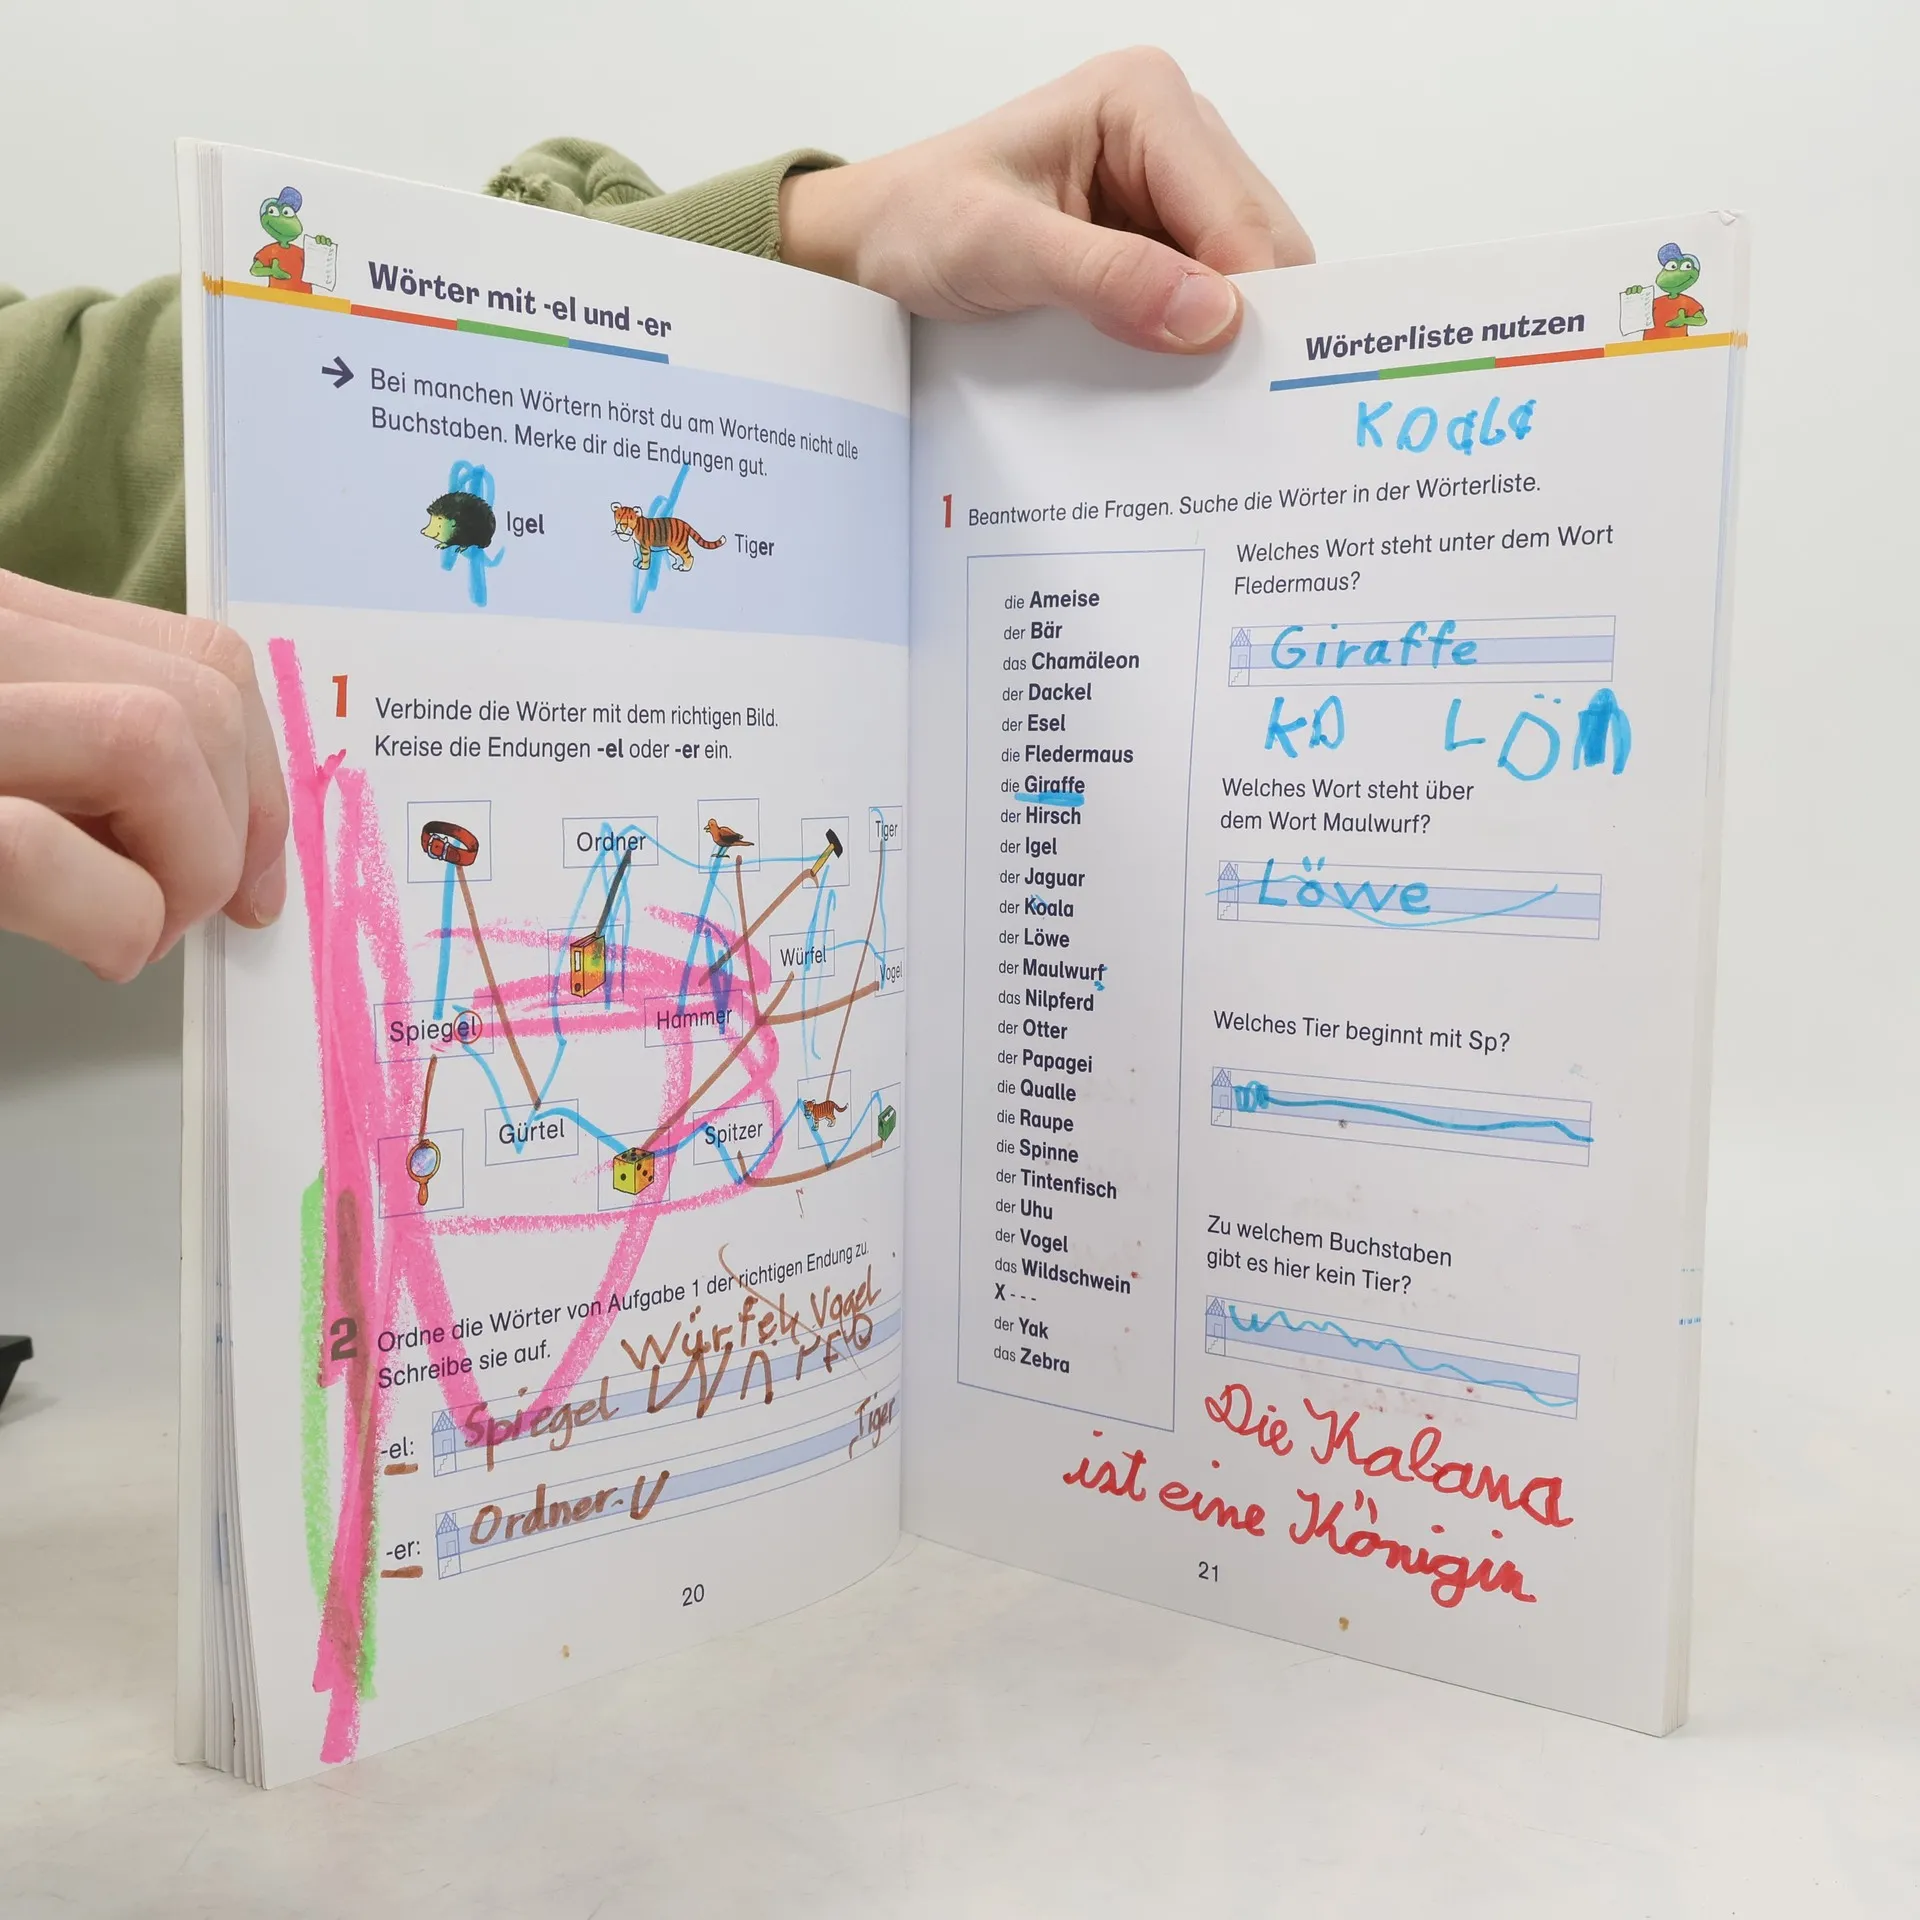 Wörter mit -el und -er
Bei manchen Wörtern hörst du am Wortende nicht alle
Buchstaben. Merke dir die Endungen gut.
Igel
Tiger
1
Verbinde die Wörter mit dem richtigen Bild.
Kreise die Endungen -el oder -er ein.
Ordner
Tiger
Würfel
Vogel
Spiegel
Hammer
Gürtel
Spitzer
2
Ordne die Wörter von Aufgabe 1 der richtigen Endung zu.
Schreibe sie auf.
Würfel Vogel
-el: Spiegel
Tiger
-er: Ordner
20
Wörterliste nutzen
Koala
1 Beantworte die Fragen. Suche die Wörter in der Wörterliste.
die Ameise
der Bär
das Chamäleon
der Dackel
der Esel
die Fledermaus
die Giraffe
der Hirsch
der Igel
der Jaguar
der Koala
der Löwe
der Maulwurf
das Nilpferd
der Otter
der Papagei
die Qualle
die Raupe
die Spinne
der Tintenfisch
der Uhu
der Vogel
das Wildschwein
X - - -
der Yak
das Zebra
Welches Wort steht unter dem Wort
Fledermaus?
Giraffe
KO LÖ
Welches Wort steht über
dem Wort Maulwurf?
Löwe
Welches Tier beginnt mit Sp?
Zu welchem Buchstaben
gibt es hier kein Tier?
Die Kalana
ist eine Königin
21